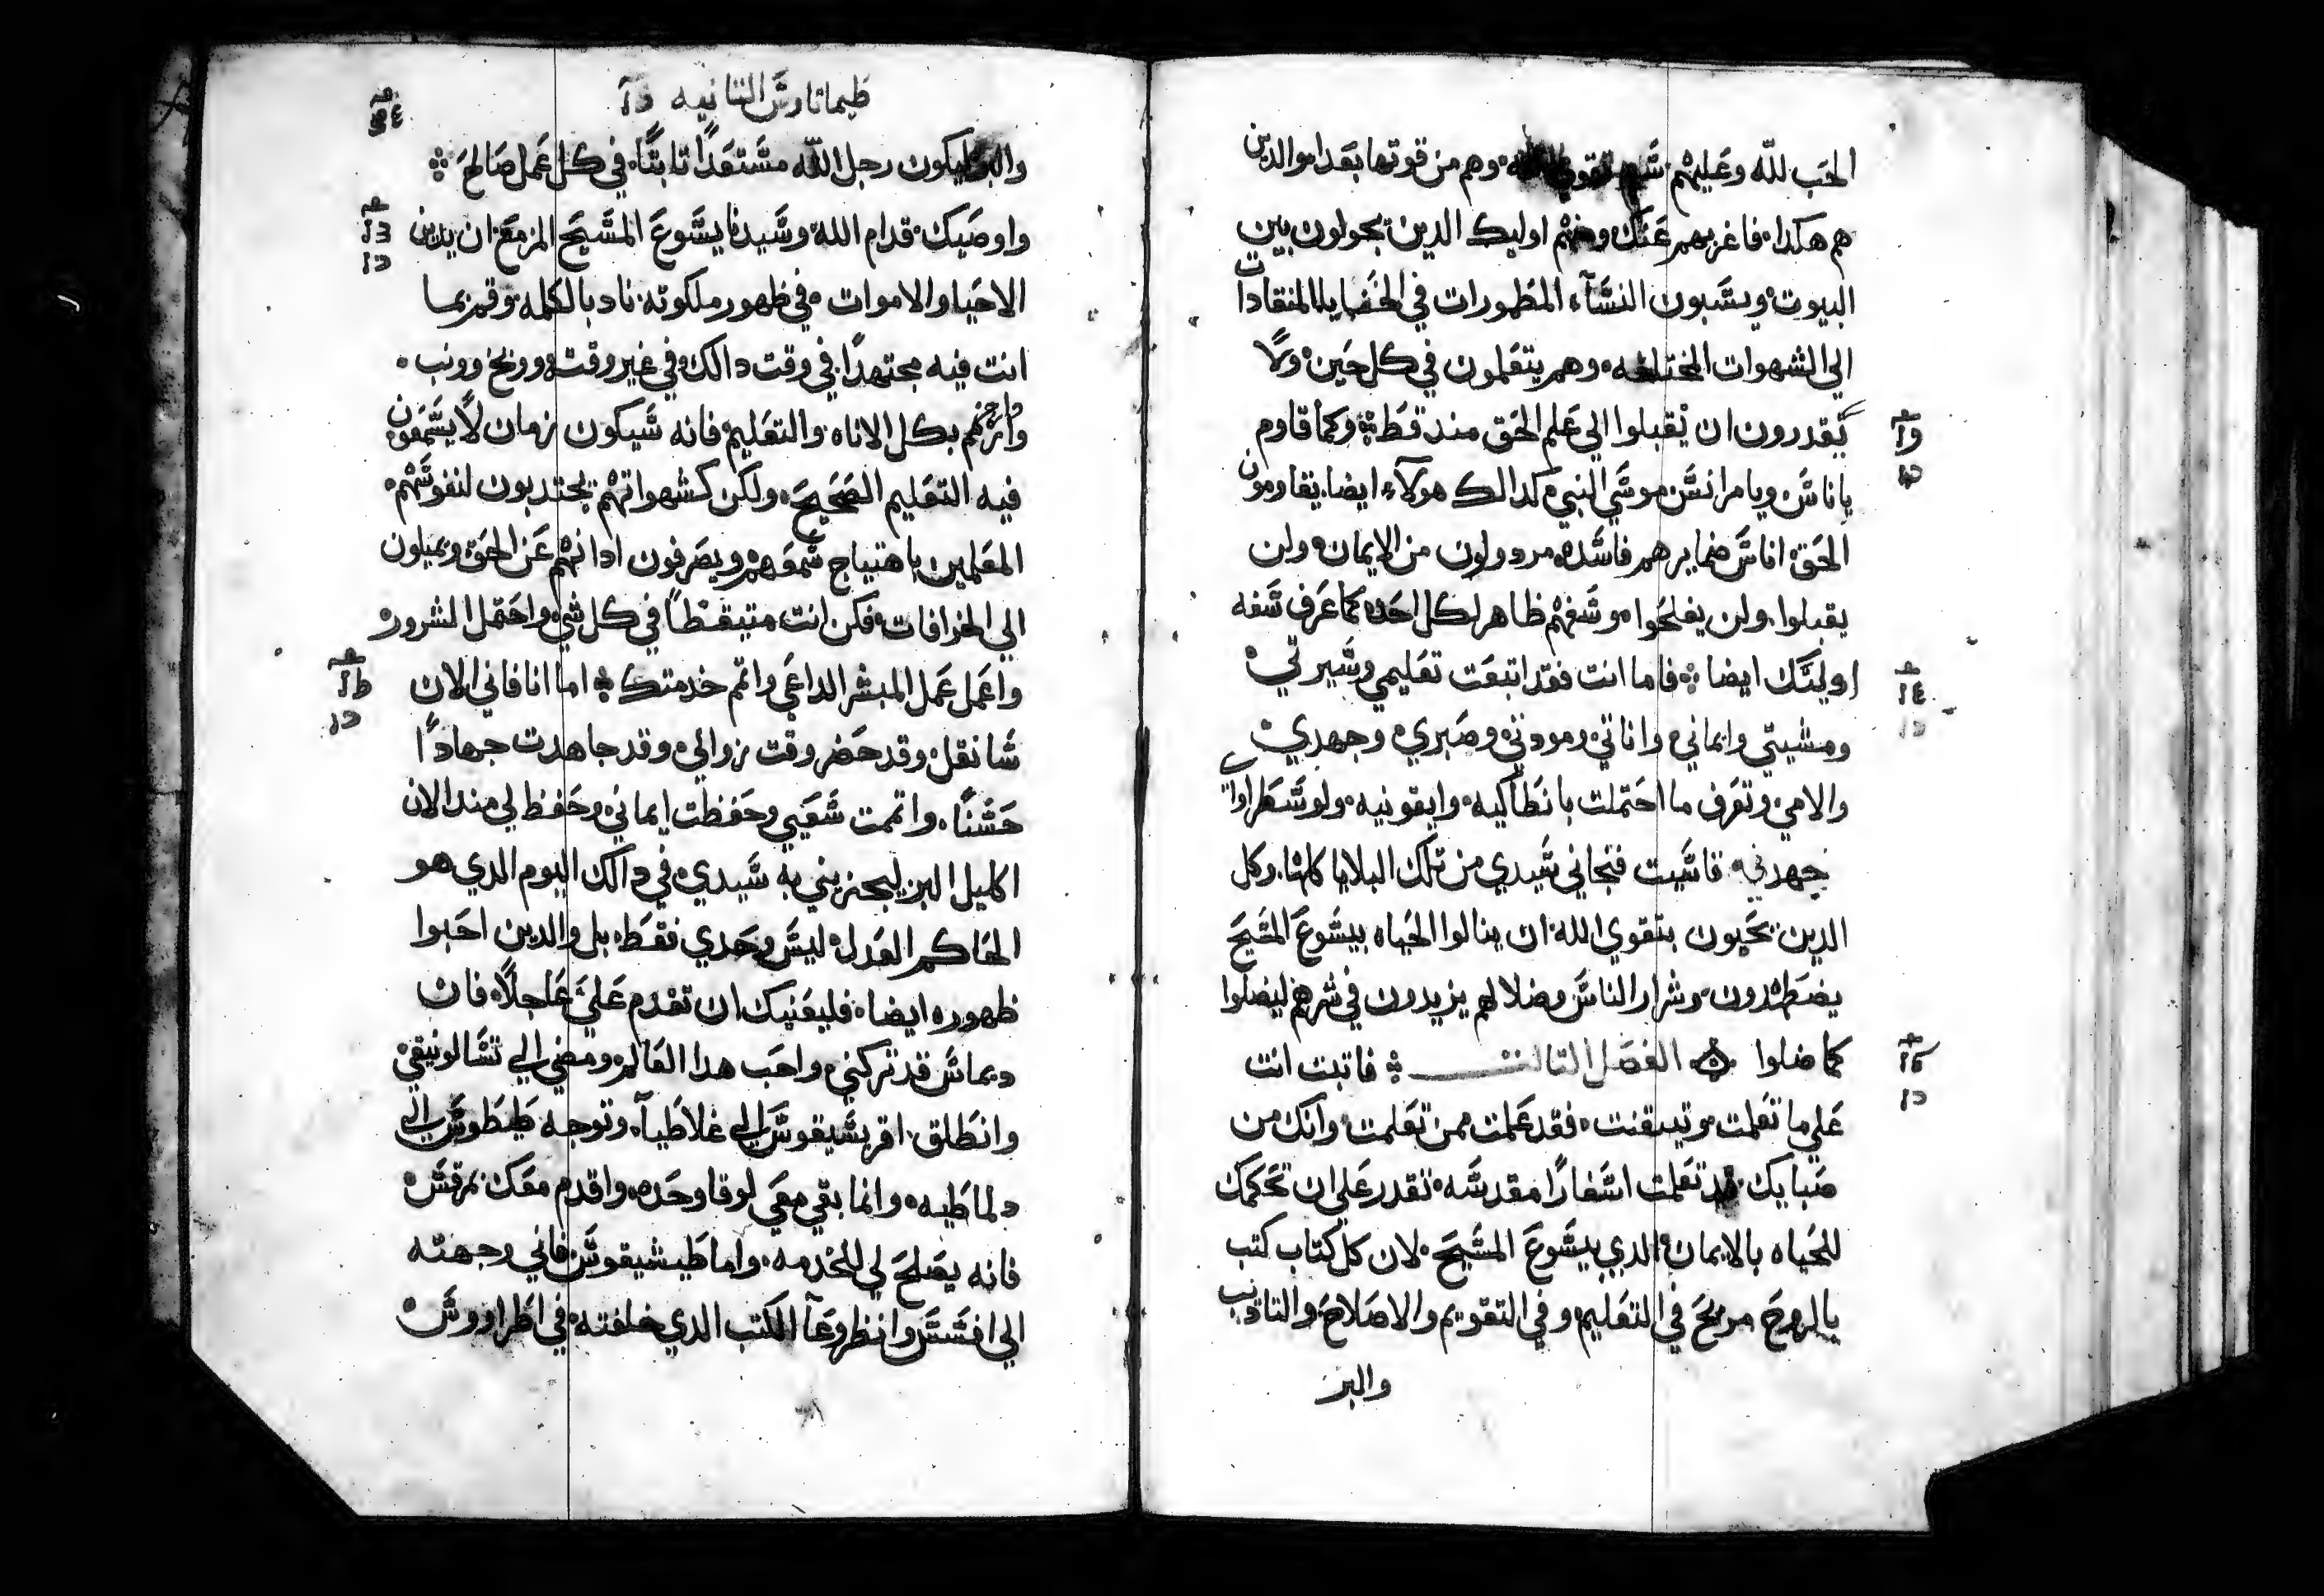 الحَب للّه وعَليهمْ شَبه تقوي وهم من قوتها بعَدا والدين
هم هكدا فاغربهم عَنك ومنهْم اوليك الدين يجولون بين
البيوت ويسَبون النسَآء المطمورات في الخَطايا المنقادات
الي الشهوات المختلفه وهم يتعَلمون في كل حَين ولاً
يَقدرون ان يْقبلوا الي عَلم الحَق مند قط وكما قاوم
ياناسَ ويامرانسَ موسَي النبي كدالك هولآء ايضا يقاومون
الحَق اناسَ ضمايرهم فاسَده مردولون من الايمان ولن
يقبلوا ولن يفلحَوا وسَفههْم ظاهر لكل احَد كما عَرف سَفه
اوليَك ايضا فاما انت فقد اتبعَت تعَليمي وسَيرتي
ومشيتي وايماني واناتي ومودتي وصَبري وجهدي
والامي وتعَرف ما احَتملت بانطاكيه وايقونيه ولوسَطرا واي
جهد قاسَيت فنجاني سَيدي من تلك البلايا كلها وكل
الدين يحَبون بتقوي الله ان ينالوا الحَياه بيسَوعَ المسَيحَ
يضطهْدون وشرار الناسَ وضلالهم يزيدون في شرهم ليضلوا
كما ضلوا الفصَل التالت فاتبت انت
عَلي ما تعَلمت وتيقنت فقد عَلمت ممن تعَلمت وانك من
صَبايك قد تعَلمت اسَفارًا مقدسَه تقدر عَلي ان تحَكمك
للحَياه بالايمان الدي بيسَوعَ المسَيحَ لان كل كتاب كتب
بالروحَ مربحَ في التعَليم وفي التقويم والاصَلاحَ والتاديب
والبر
طيماتاوسَ التانيه
والبر ليكون رجل اللّه مسَتعَدًا تابتًا في كل عَمل صَالحَ
واوصَيك قدام الله وسَيدنا يسَوعَ المسَيحَ المزمعَ ان يدين
الاحَيا والاموات في ظهور ملكوته ناد بالكلمه وقم بما
انت فيه مجتهدًا في وقت دالك وفي غير وقت ووبخ وونب
وازجرهم بكل الاناه والتعَليم فانه سَيكون زمان لاً يسَمعَون
فيه التعَليم الصَحَيحَ ولكن كشهواتهمْ يجتدبون لنفوسَهْم
المعَلمين باهتياج سَمعَهم ويصَرفون ادانهْم عَن الحَق ويميلون
الي الخرافات فكن انت متيقظاً في كل شي واحَتمل الشرور
واعَمل عَمل المبشر الداعَي واتمم خدمتك اما انا فاني الان
سَانقل وقد حَضر وقت زوالي وقد جاهدت جهادًا
حَسَنًا واتممت سَعَيي وحَفظت ايماني وحَفظ لي مند الان
اكليل البر ليجزيني به سَيدي في دالك اليوم الدي هو
الحَاكم العَدل ليسَ وحَدي فقط بل والدين احَبوا
ظهوره ايضا فليعَنيك ان تقدم عَليَ عَاجلاً فان
ديماسَ قد تركني واحَب هدا العَالم ومضي الي تسَالونيقي
وانطَلق اقريسَيقوسَ الي غلاطيا وتوجه طَيطوسَ الي
دلماطَيه وانما بقي معَي لوقا وحَده واقدم معَك بمرقسَ
فانه يصَلحَ لي للخدمه واما طَيشيقوسَ فاني وجهته
الي افسَسَ وانظر وعَآ الكتب الدي خلفته في اطراووسَ